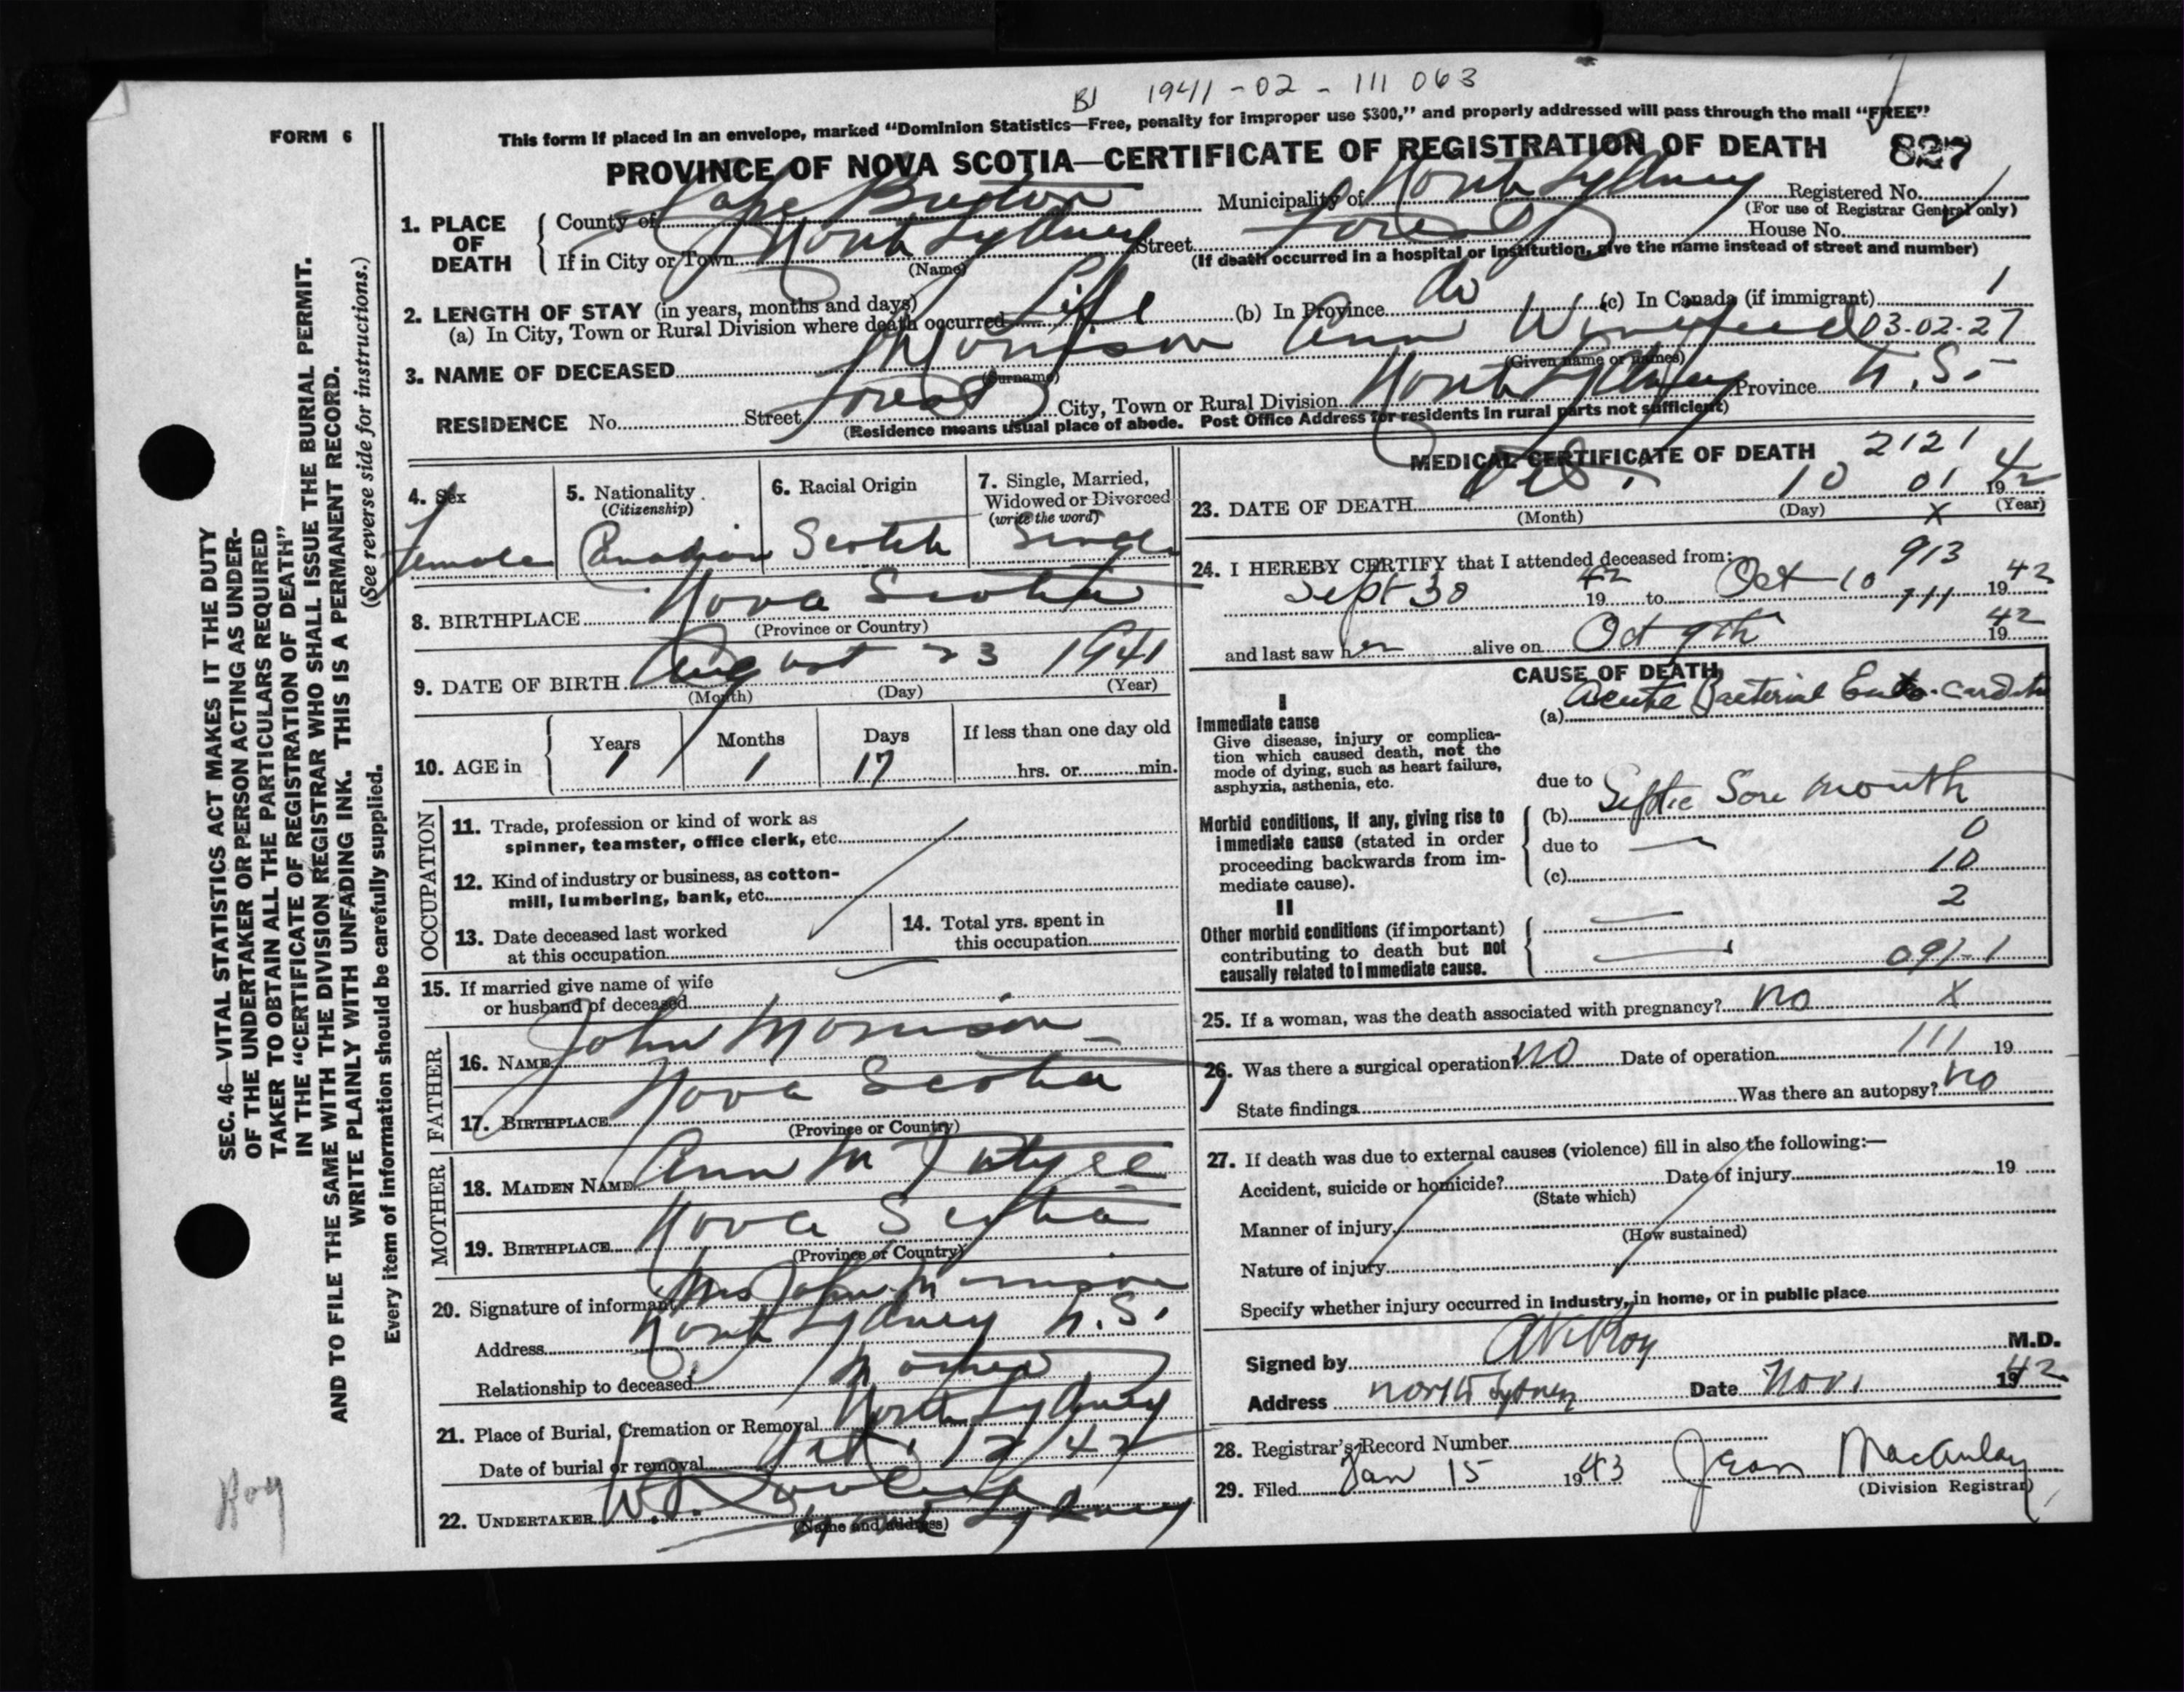 BJ 1941-02-111 063
This form if placed in an envelope, marked “Dominion Statistics—Free, penalty for improper use $300,” and properly addressed will pass through the mail “FREE”
FORM 6
PROVINCE OF NOVA SCOTIA—CERTIFICATE OF REGISTRATION OF DEATH 827
1. PLACE OF DEATH
County of Cape Breton Municipality of North Sydney Registered No.
(For use of Registrar General only)
If in City or Town North Sydney Street Forest House No.
(Name) (If death occurred in a hospital or institution, give the name instead of street and number)
2. LENGTH OF STAY (in years, months and days)
(a) In City, Town or Rural Division where death occurred Life (b) In Province do (c) In Canada (if immigrant) 1
3. NAME OF DECEASED Morrison Ann Winnifred 03-02-27
(Surname) (Given name or names)
RESIDENCE No. Street Forest City, Town or Rural Division North Sydney Province N.S.
(Residence means usual place of abode. Post Office Address for residents in rural parts not sufficient)
4. Sex
female
5. Nationality
(Citizenship)
Canadian
6. Racial Origin
Scotch
7. Single, Married,
Widowed or Divorced
(write the word)
Single
8. BIRTHPLACE Nova Scotia
(Province or Country)
9. DATE OF BIRTH August 23 1941
(Month) (Day) (Year)
10. AGE in
Years Months Days If less than one day old
1 1 17 hrs. or min.
OCCUPATION
11. Trade, profession or kind of work as
spinner, teamster, office clerk, etc.
12. Kind of industry or business, as cotton-
mill, lumbering, bank, etc.
13. Date deceased last worked
at this occupation
14. Total yrs. spent in
this occupation
15. If married give name of wife
or husband of deceased
FATHER
16. NAME John Morrison
17. BIRTHPLACE Nova Scotia
(Province or Country)
MOTHER
18. MAIDEN NAME Ann
19. BIRTHPLACE Nova Scotia
(Province or Country)
20. Signature of informant Mrs John Morrison
Address North Sydney N.S.
Relationship to deceased Mother
21. Place of Burial, Cremation or Removal North Sydney
Date of burial or removal Oct. 12/42
22. UNDERTAKER
(Name and address) North Sydney
MEDICAL CERTIFICATE OF DEATH 2121
23. DATE OF DEATH Oct. 10 01 1942
(Month) (Day) (Year)
X
24. I HEREBY CERTIFY that I attended deceased from: 913
Sept 30 1942 to Oct 10 1942
111
and last saw her alive on Oct 9th 1942
CAUSE OF DEATH
I
Immediate cause
Give disease, injury or complica-
tion which caused death, not the
mode of dying, such as heart failure,
asphyxia, asthenia, etc.
(a) Acute Bacterial Endo-carditis
due to
Morbid conditions, if any, giving rise to
immediate cause (stated in order
proceeding backwards from im-
mediate cause).
(b) Septic Sore mouth
due to — 0
(c) 10
2
II
Other morbid conditions (if important)
contributing to death but not
causally related to immediate cause.
091-1
25. If a woman, was the death associated with pregnancy? no X
26. Was there a surgical operation no Date of operation 111 19
State findings Was there an autopsy? no
27. If death was due to external causes (violence) fill in also the following:—
Accident, suicide or homicide? Date of injury 19
(State which)
Manner of injury
(How sustained)
Nature of injury
Specify whether injury occurred in industry, in home, or in public place
Signed by M.D.
Address North Sydney Date Nov. 1942
28. Registrar's Record Number
29. Filed Jan 15 1943 Jean MacAulay
(Division Registrar)
SEC. 46—VITAL STATISTICS ACT MAKES IT THE DUTY
OF THE UNDERTAKER OR PERSON ACTING AS UNDER-
TAKER TO OBTAIN ALL THE PARTICULARS REQUIRED
IN THE “CERTIFICATE OF REGISTRATION OF DEATH”
AND TO FILE THE SAME WITH THE DIVISION REGISTRAR WHO SHALL ISSUE THE BURIAL PERMIT.
WRITE PLAINLY WITH UNFADING INK. THIS IS A PERMANENT RECORD.
(See reverse side for instructions.)
Every item of information should be carefully supplied.
Roy